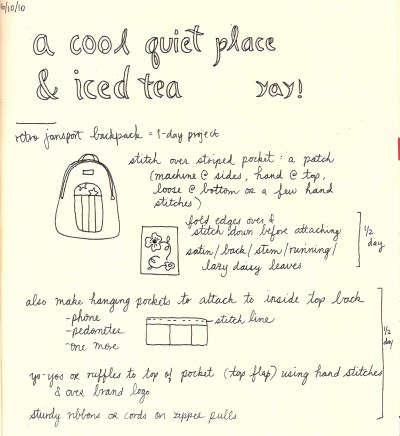 6/10/10
a cool quiet place
& iced tea yay!
retro jansport backpack = 1-day project
stitch over striped pocket : a patch
(machine @ sides, hand @ top,
loose @ bottom or a few hand
stitches)
fold edges over &
stitch down before attaching
satin/back/stem/running/
lazy daisy leaves
1/2 day
also make hanging pockets to attach to inside top back
-phone
-pedometer
-one more
-stitch line
1/2 day
yo-yos or ruffles to top of pocket (top flap) using hand stitches
& over brand logo
sturdy ribbons or cords on zipper pulls